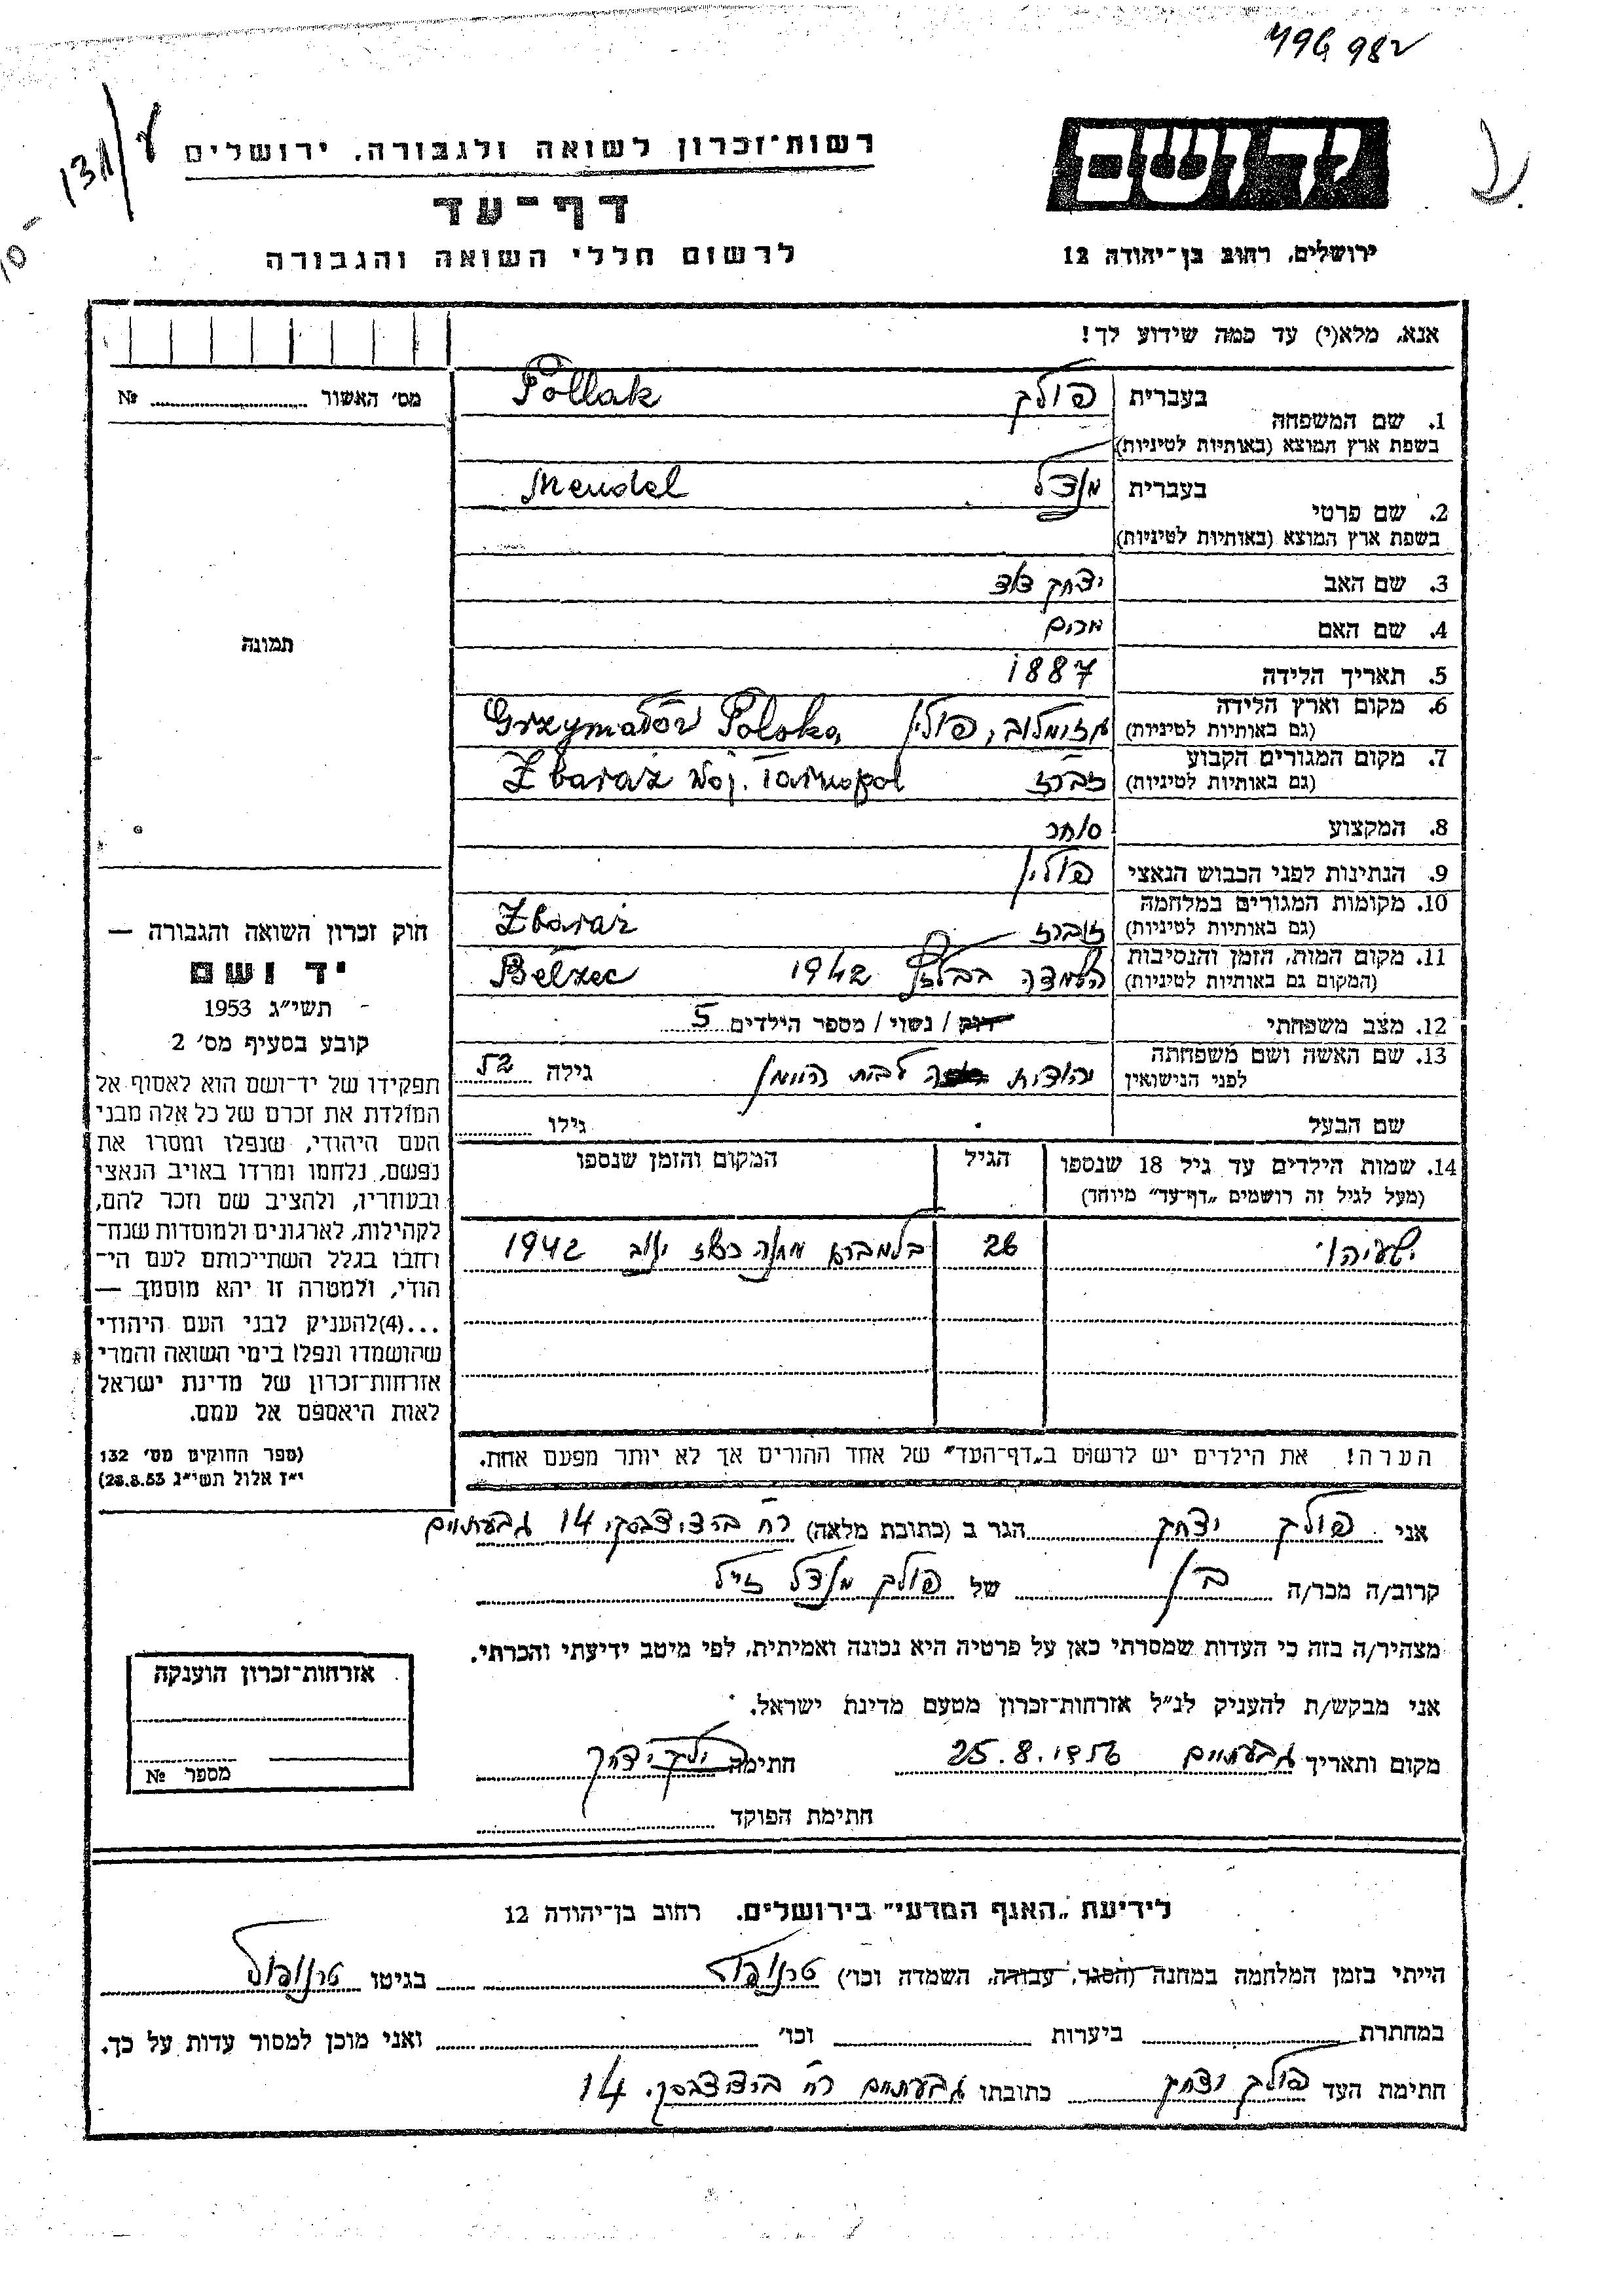 496982
138/ע
רשות־זכרון לשואה ולגבורה, ירושלים
יד ושם
דף־עד
לרשום חללי השואה והגבורה
ירושלים, רחוב בן־יהודה 12
אנא, מלא(י) עד כמה שידוע לך!
מס׳ האשור № 
1. שם המשפחה
בעברית פולק Pollak
בשפת ארץ המוצא (באותיות לטיניות)
2. שם פרטי
בעברית מנדל Mendel
בשפת ארץ המוצא (באותיות לטיניות)
3. שם האב יצחק
4. שם האם מרים
תמונה
5. תאריך הלידה 1887
6. מקום וארץ הלידה
(גם באותיות לטיניות) גזומלוב, פולין Grzymałów Polska
7. מקום המגורים הקבוע
(גם באותיות לטיניות) זברז Zbaraż woj. Tarnopol
8. המקצוע סוחר
9. הנתינות לפני הכבוש הנאצי פולין
10. מקומות המגורים במלחמה
(גם באותיות לטיניות) זברז Zbaraż
11. מקום המות, הזמן והנסיבות
(המקום גם באותיות לטיניות) השמדה בבלזץ 1942 Bełzec
12. מצב משפחתי רווק / נשוי / מספר הילדים 5
13. שם האשה ושם משפחתה
לפני הנישואין יהודית לבית גילה 52
שם הבעל גילו
14. שמות הילדים עד גיל 18 שנספו
(מעל לגיל זה רושמים „דף־עד״ מיוחד)
הגיל
המקום והזמן שנספו
ישעיהו 26 בלמברג מחנה ינוב 1942
הערה! את הילדים יש לרשום ב„דף־העד״ של אחד ההורים אך לא יותר מפעם אחת.
חוק זכרון השואה והגבורה —
יד ושם
תשי״ג 1953
קובע בסעיף מס׳ 2
תפקידו של יד־ושם הוא לאסוף אל
המולדת את זכרם של כל אלה מבני
העם היהודי, שנפלו ומסרו את
נפשם, נלחמו ומרדו באויב הנאצי
ובעוזריו, ולהציב שם וזכר להם,
לקהילות, לארגונים ולמוסדות שנח־
רחבו בגלל השתייכותם לעם הי־
הודי, ולמטרה זו יהא מוסמך —
...(4)להעניק לבני העם היהודי
שהושמדו ונפלו בימי השואה והמרי
אזרחות־זכרון של מדינת ישראל
לאות היאספם אל עמם.
(ספר החוקים מס׳ 132
י״ז אלול תשי״ג 28.8.53)
אני פולק יצחק הגר ב (כתובת מלאה) רח׳ ברדיצ׳בסקי 14 גבעתיים
קרוב/ה מכר/ה בן של פולק מנדל ז״ל
מצהיר/ה בזה כי העדות שמסרתי כאן על פרטיה היא נכונה ואמיתית, לפי מיטב ידיעתי והכרתי.
אני מבקש/ת להעניק לנ״ל אזרחות־זכרון מטעם מדינת ישראל.
מקום ותאריך גבעתיים 25.8.1956 חתימה פולק יצחק
חתימת הפוקד
אזרחות־זכרון הוענקה
מספר №
לידיעת „האגף המדעי״ בירושלים. רחוב בן־יהודה 12
הייתי בזמן המלחמה במחנה (הסגר, עבודה, השמדה וכו׳) טרנופול בגיטו טרנופול
במחתרת ביערות וכו׳ ואני מוכן למסור עדות על כך.
חתימת העד פולק יצחק כתובתו גבעתיים רח׳ ברדיצ׳בסקי 14